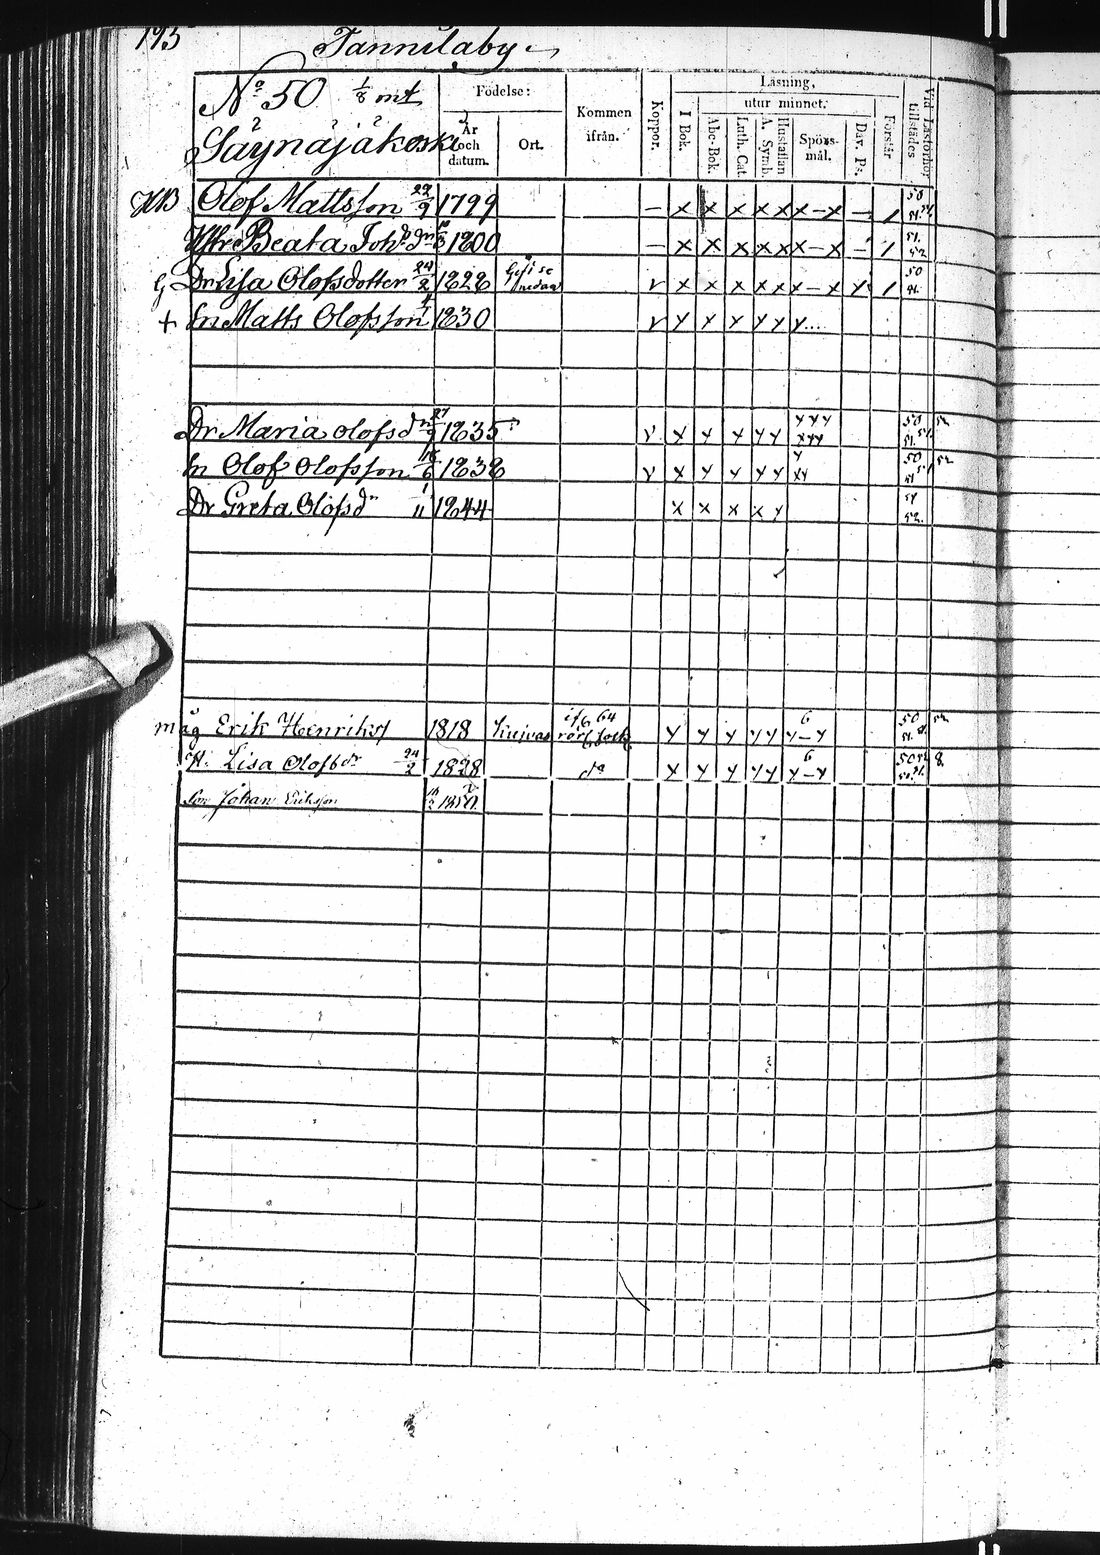 195 Tannilaby
No 50 1/8 mt
Säynäjäkoski
Födelse: År och datum. Ort. Kommen ifrån. Koppor. Läsning, utur minnet. I Bok. Abc-Bok. Luth. Cat. A. Symb. Hustaflan Spörsmål. Dav. Ps. Förstår Vid Läsförhör tillstädes
Olof Mattsson 1799 — x x x x x x - x — 1 50
Beata 1800 — x x x x x x - x — 1 51. 52
G Dr Lisa Olofsdotter 24/2 1828 se nedan v x x x x x x - x 1 50
+ Sn Matts Olofsson 1830 v y y y y y y
Dr Maria Olofsdr 1835 v x y x y y y y y x x x 50 52
Sn Olof Olofsson 1838 v x y y y y y x y 50 52
Dr Greta Olofsdr 1/11 1844 x x x x y 52
måg Erik Henriks 1818 64 y y y y y 6 y - y 50 52
H. Lisa Olofsdr 24/2 1828 do y y y y y 6 y - y 50 8
Son Johan Eriksson